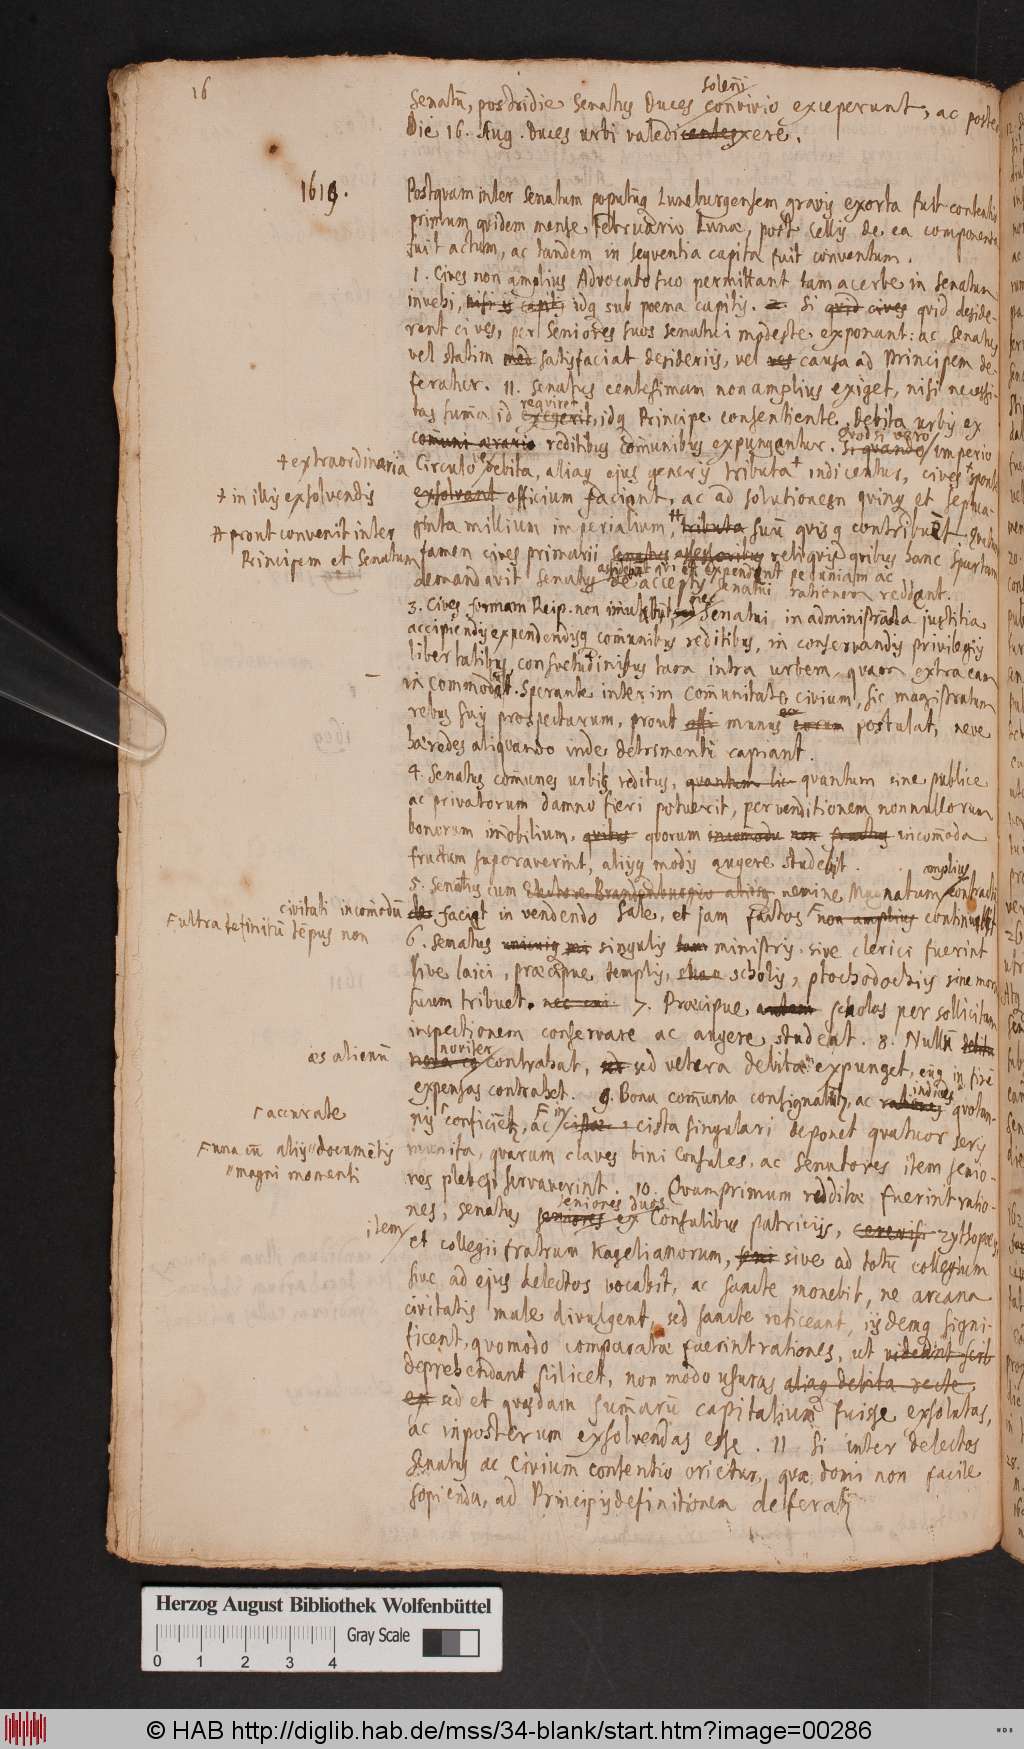 16
solenni
Senatū, postridie Senatus Duces convivio exceperunt, ac poste
Die 16. Aug. Duces urbi valedicentes xere.
1619.
Postquam inter Senatum populūq Luneburgensem gravis exorta fuit contentio
primum quidem mense Februario Lunæ, post Cellis de ea componenda
fuit actum, ac tandem in sequentia capita fuit conventum.
1. Cives non amplius Advocato suo permittant tam acerbe in Senatum
invehi, nisi is capitis idq sub poena capitis. Si quid cives quid deside-
rent cives, per Seniores suos senatui modeste exponant: ac Senatus
vel statim satisfaciat desideriis, vel causa ad Principem de-
feratur. 11. Senatus centesimam non amplius exiget, nisi necessi-
requiret
tas summa id exegerit, idq Principe consentiente. Debita urbis ex
communi ærario reditibus communibus expungantur. Si quando imperio
quod si vero
Circulo debita, aliaq ejus generis tributa + indicentur, cives sponte
+ extraordinaria
exsolvant officium faciant, ac ad solutionem quinq et septua-
+ in illis exsolvendis
ginta millium imperialium, tributa suū quisq contribuet.
# prout convenit inter
Principem et Senatum
tamen cives primarii Senatus assessoribus reliquis quibus hanc Spartam
demandavit Senatus de acceptis Senatui rationem reddant.
expendant pecuniam ac
3. Cives formam Reip. non imutabūt, nec Senatui in administrada justitia
accipiendis expendendisq comunibus reditibus, in conservandis privilegiis
libertatibus, consuetudinibus tam intra urbem, quam extra eam
incommodēt. Sperante interim Comunitate civium, sic magistratum
rebus suis prospecturum, prout munus postulat, neve
hæredes aliquando inde detrimenti capiant.
4. Senatus comunes urbis reditus, quantum lic quantum sine publice
ac privatorum damno fieri potuerit, per venditionem nonnullorum
bonorum imobilium, quibus quorum incomoda non fructus incomoda
fructum superaverint, aliisq modis augere studebit.
5. Senatus cum Electore Brandenburgico aliisq nemine Magnatum contractū
amplius
civitati incomodū
de faciet in vendendo sale, et jam factos non amplius continuabit
F ultra definitū tēpus non
6. Senatus singulis ministris, sive clerici fuerint
sive laici, præcipue templis, scholis, ptochodochiis sine mora
suum tribuet. 7. Præcipue autem scholas per sollicitam
inspectionem conservare ac augere studeat. 8. Nullū debitū
æs alienū
noviter
contrahat, sed vetera debita expunget, eūq in finē
expensas contrahet. 9. Bona comunia consignabit, ac rationes quotan-
indices
Γ accurate
nis conficiet, ac cistæ cista singulari deponet quatuor seris
F una cū aliis documētis
magni momenti
munita, quarum claves bini Consules, ac Senatores item senio-
res plebeji servaverint. 10. Quamprimum redditæ fuerint ratio-
seniores duos
nes, Senatus seniores ex Consulibus patriciis, cerevisi zythopœis,
item
et collegii fratrum Kagelianorum, sive ad totū collegium
sive ad ejus delectos vocabit, ac sancte monebit, ne arcana
civitatis male divulgent, sed sancte reticeant, iisdemq signi-
ficent, quomodo comparatæ fuerint rationes, ut videant scib
deprehendant scilicet, non modo usuras aliaq debita recte
sed et quasdam sumarū capitalium fuisse exsolutas,
ac inposterum exsolvendas esse. 11 Si inter delectos
Senatus ac Civium contentio orietur, quæ domi non facile
sopienda, ad Principis definitionem deferat
Herzog August Bibliothek Wolfenbüttel
Gray Scale
0 1 2 3 4
© HAB http://diglib.hab.de/mss/34-blank/start.htm?image=00286